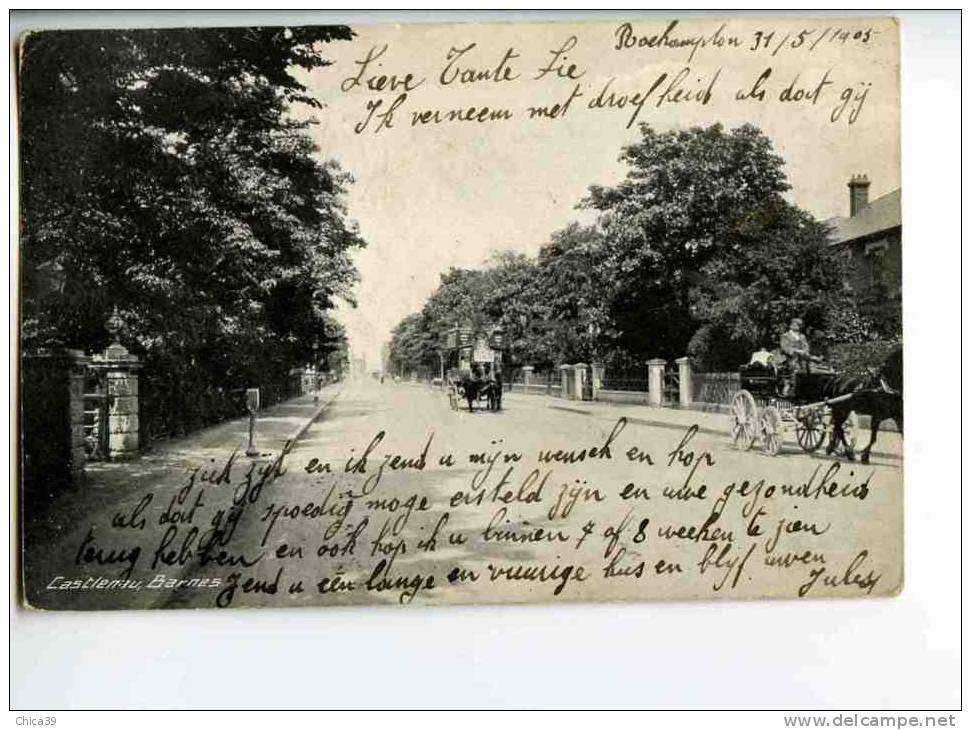 Roehampton 31/5/1905
Lieve Tante Sie
Ik verneem met droefheid als dat gij
ziek zijt en ik zend u mijn wensch en hop
als dat gij spoedig moge ersteld zijn en uwe gezondheid
terug hebben en ook hop ik u binnen 7 of 8 weeken te zien
Zend u een lange en vuurige kus en blijf uwen Jules
Castlenau, Barnes
Chica39
http://www.delcampe.net